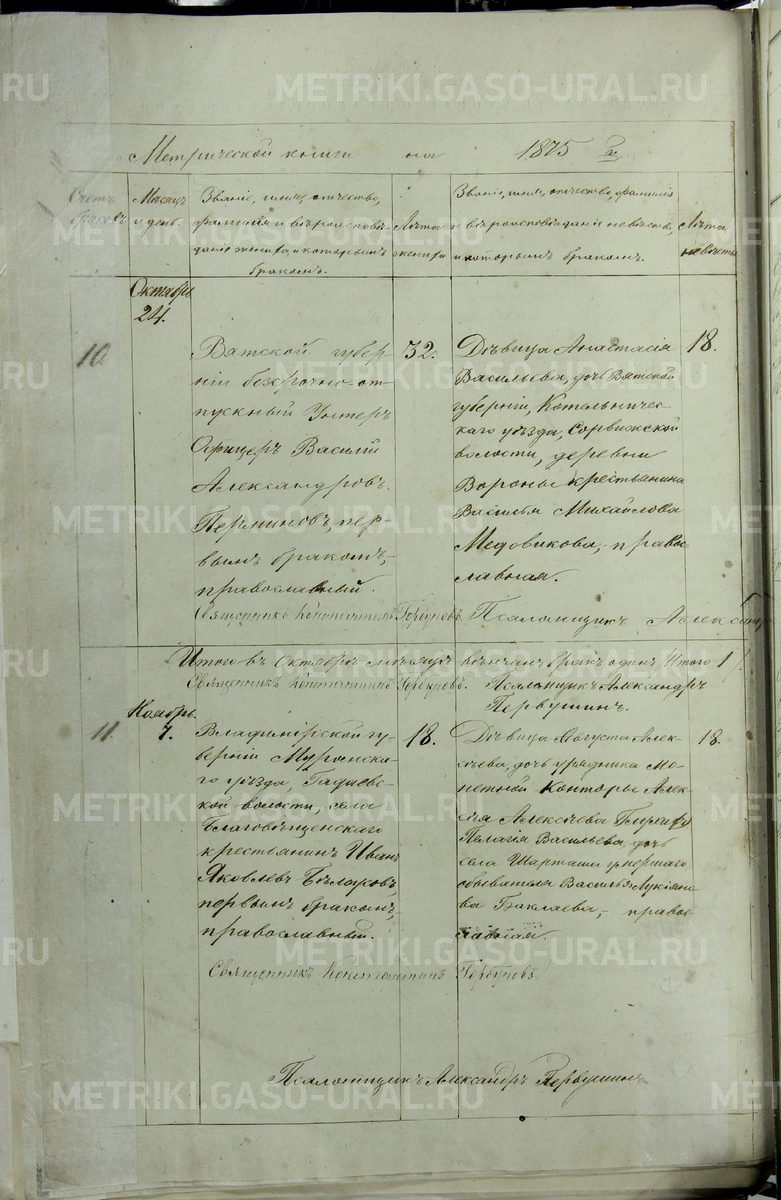 METRIKI.GASO-URAL.RU
Метрической книги на 1875 г.
Счетъ браковъ
Мѣсяцъ и день.
Званіе, имя, отчество,
фамилія и вѣроисповѣ-
даніе жениха и которымъ
бракомъ.
Лѣта
жениха
Званіе, имя, отчество, фамилія
и вѣроисповѣданіе невѣсты,
и которымъ бракомъ.
Лѣта
невѣсты
Октябрь
24.
10.
Вятской губер-
ніи безсрочно-от-
пускный Унтеръ
Офицеръ Василій
Александровъ
Перминовъ, пер-
вымъ бракомъ,
православный.
32.
Дѣвица Анастасія
Васильева, дочь Вятской
губерніи, Котельничес-
каго уѣзда, Сорвижской
волости, деревни
Вороны крестьянина
Василья Михайлова
Медовикова, - право-
славная.
18.
Священникъ Константинъ Горбуновъ. Псаломщикъ
Итого въ Октябрѣ мѣсяцѣ вѣнчан бракъ одинъ Итого 1
Священникъ Константинъ Горбуновъ. Псаломщикъ Александръ
Первушинъ.
Ноябрь.
7.
11.
Владимірской гу-
берніи Муромска-
го уѣзда,
кой волости, села
Благовѣщенскаго
крестьянинъ Иванъ
Яковлевъ
первымъ бракомъ,
православный.
18.
Дѣвица Августа Алек-
сѣева, дочь урядника Мо-
нетной Конторы Алек-
сѣя Алексѣева
Пелагія Васильева, дочь
села Шарташа
обывателя Василья Лукіяно-
ва - право-
славная.
18.
Священникъ Константинъ Горбуновъ.
Псаломщикъ Александръ Первушинъ